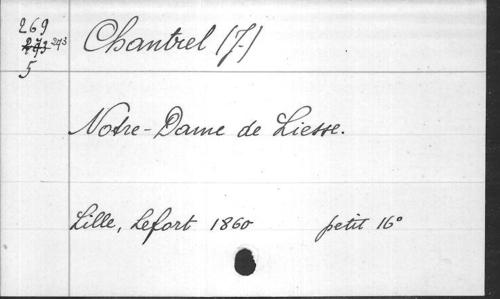 269
273
5
Chantrel (J.)
Notre-Dame de Liesse.
Lille, Lefort 1860 petit 16°